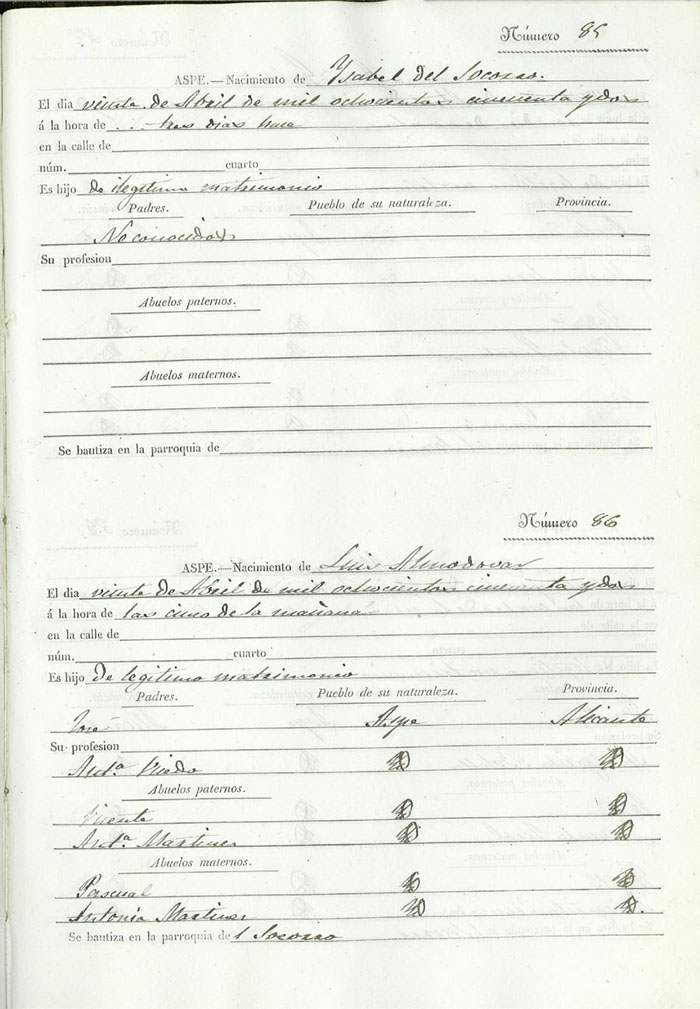 Número 85
ASPE.—Nacimiento de Ysabel del Socorro.
El dia veinte de Abril de mil ochocientos cincuenta y dos
á la hora de ... tres dias hace
en la calle de
núm. cuarto
Es hijo de ilegitimo matrimonio
Padres. Pueblo de su naturaleza. Provincia.
No conocidos
Su profesion
Abuelos paternos.
Abuelos maternos.
Se bautiza en la parroquia de
Número 86
ASPE.—Nacimiento de Luis Almodovar
El dia veinte de Abril de mil ochocientos cincuenta y dos
á la hora de las cinco de la mañana
en la calle de
núm. cuarto
Es hijo de legitimo matrimonio
Padres. Pueblo de su naturaleza. Provincia.
José Aspe Alicante
Su profesion
Antª
Abuelos paternos.
Vicente
Antª Martinez
Abuelos maternos.
Pascual
Antonia Martinez
Se bautiza en la parroquia de l Socorro